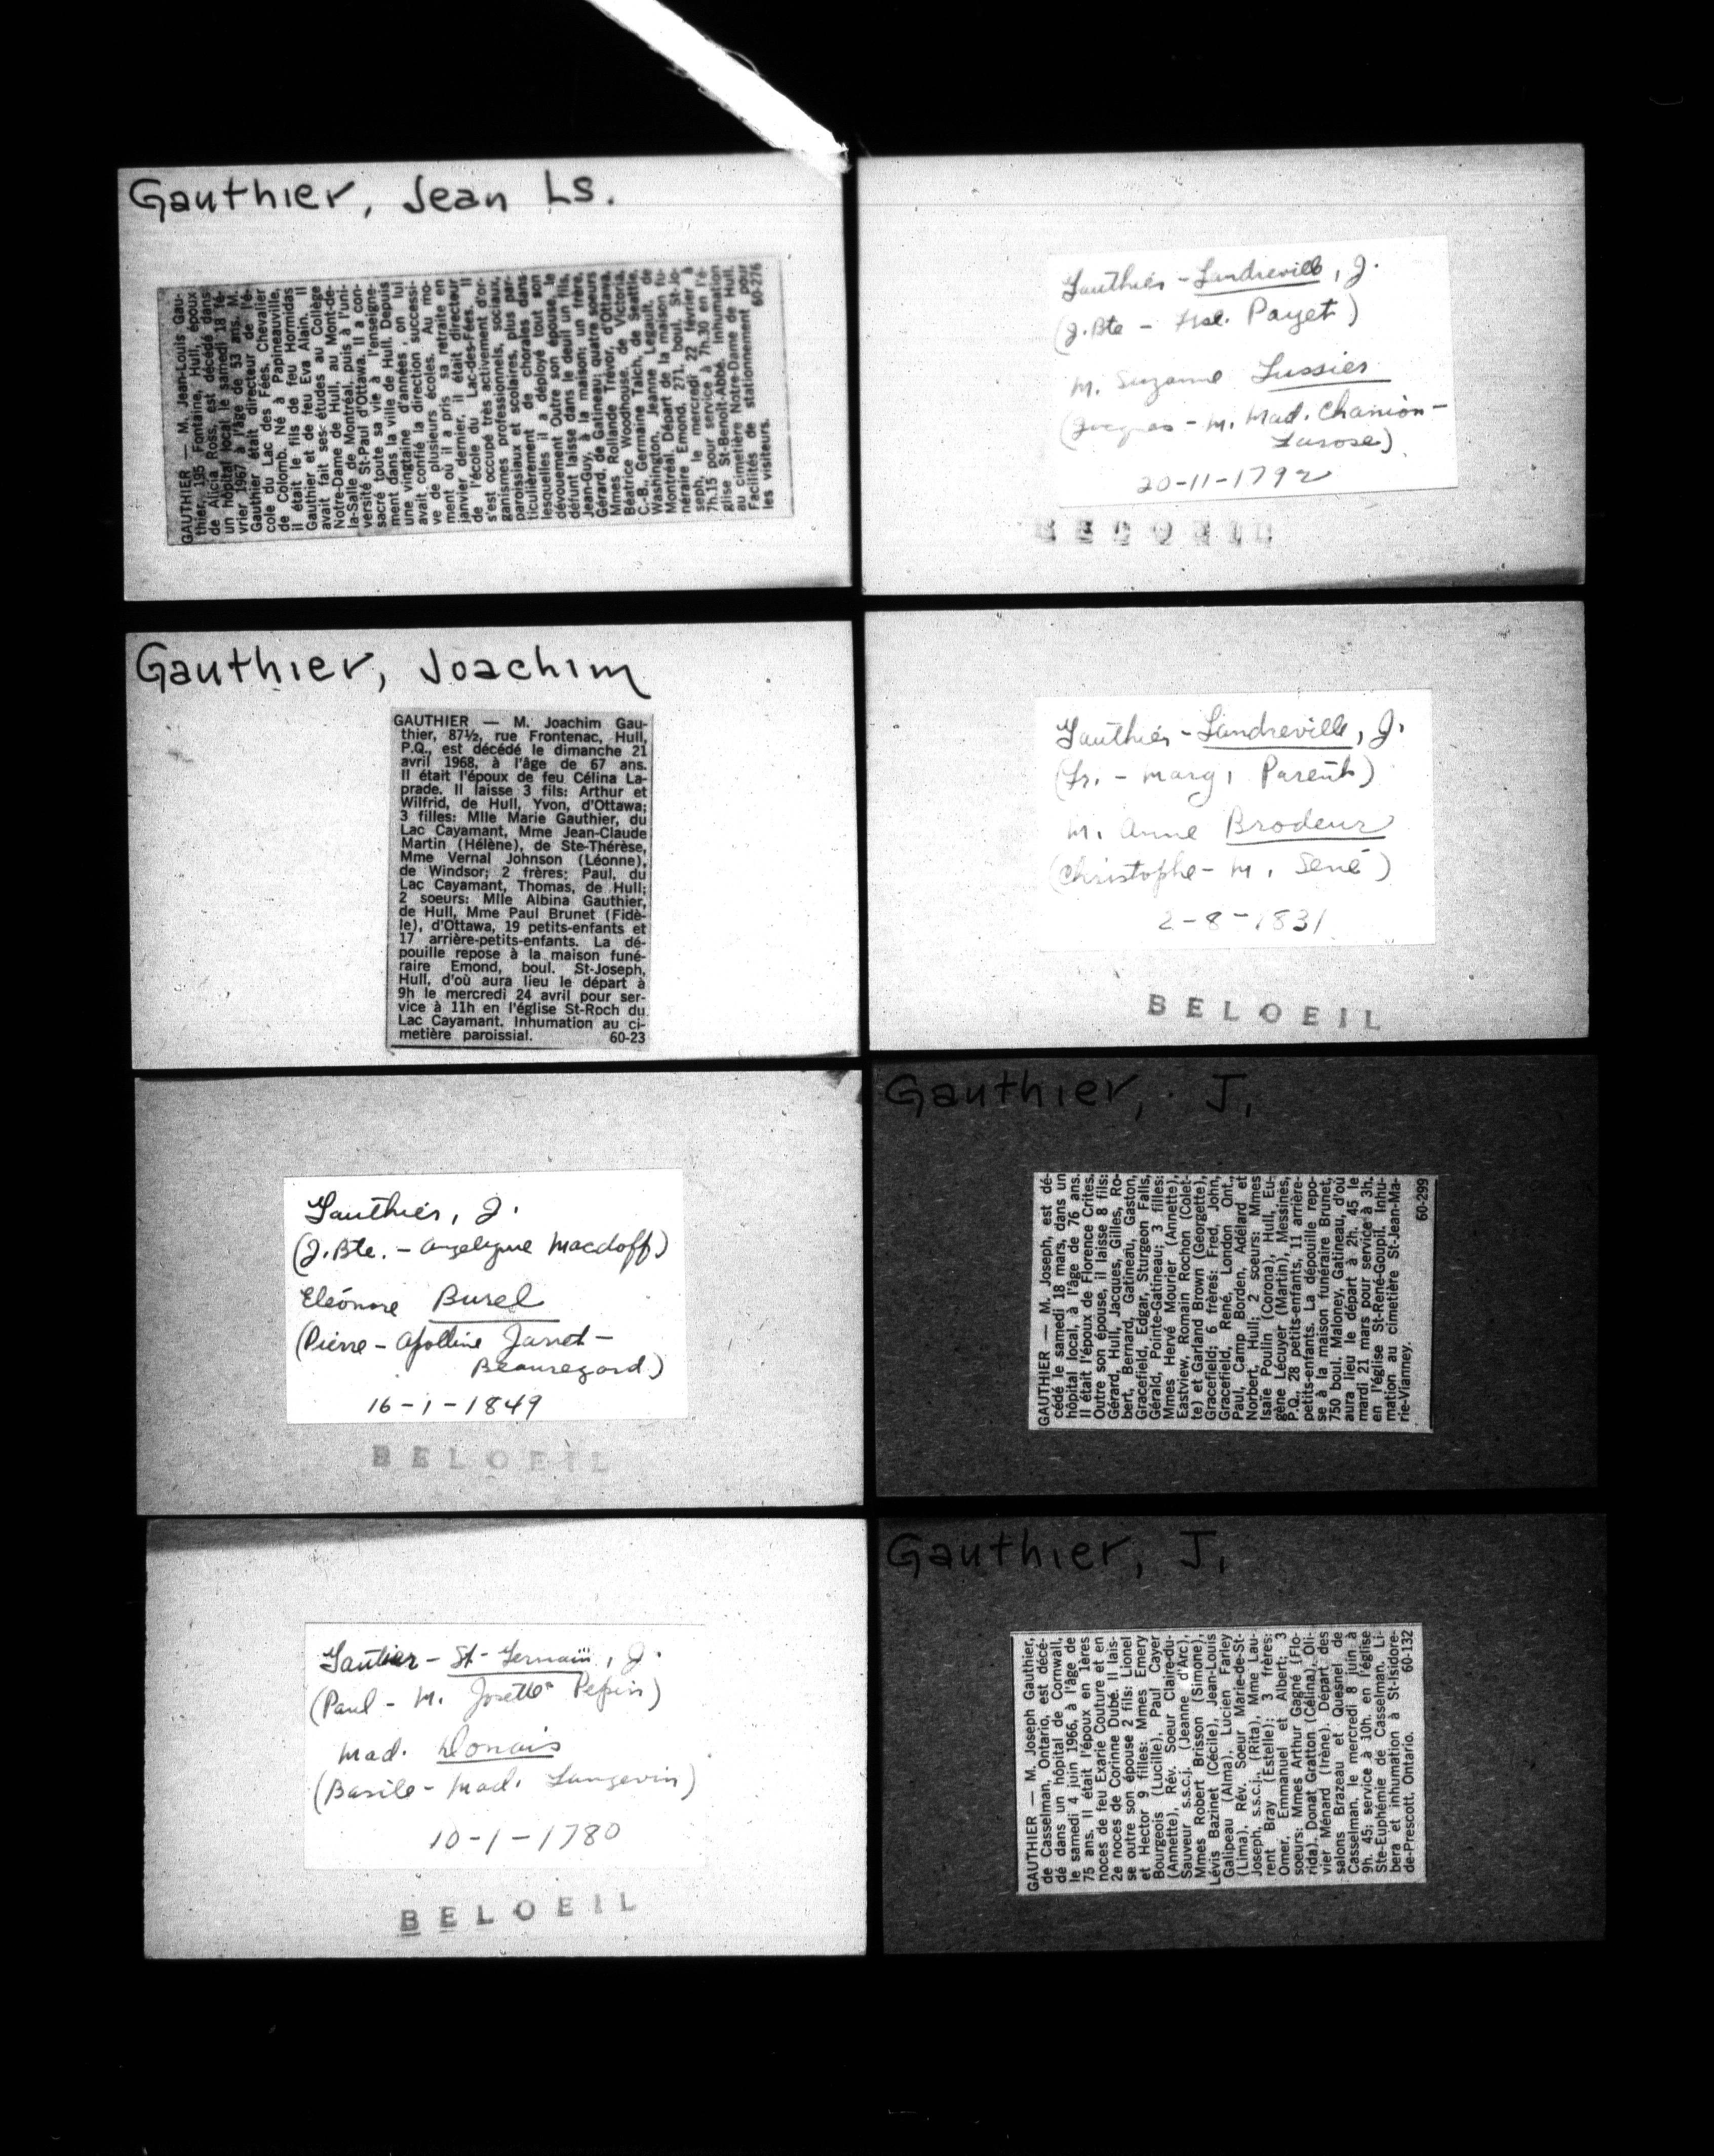 Gauthier, Jean Ls.
GAUTHIER — M. Jean-Louis Gau-
thier, 195 Fontaine, Hull, époux
de Alicia Ross, est décédé dans
un hôpital local le samedi 18 fé-
vrier 1967 à l'âge de 53 ans. M.
Gauthier était directeur de l'é-
cole du Lac des Fées, Chevalier
de Colomb. Né à Papineauville,
il était le fils de feu Hormidas
Gauthier et de feu Eva Alain. Il
avait fait ses études au Collège
Notre-Dame de Hull, au Mont-de-
la-Salle de Montréal, puis à l'uni-
versité St-Paul d'Ottawa. Il a con-
sacré toute sa vie à l'enseigne-
ment dans la ville de Hull. Depuis
une vingtaine d'années, on lui
avait confié la direction successi-
ve de plusieurs écoles. Au mo-
ment où il a pris sa retraite en
janvier dernier, il était directeur
de l'école du Lac-des-Fées. Il
s'est occupé très activement d'or-
ganismes professionnels, sociaux,
paroissiaux et scolaires, plus par-
ticulièrement de chorales dans
lesquelles il a déployé tout son
dévouement Outre son épouse, le
défunt laisse dans le deuil un fils,
Jean-Guy, à la maison; un frère,
Gérard, de Gatineau; quatre soeurs
Mmes Rollande Trévor, d'Ottawa,
Béatrice Woodhouse, de Victoria,
C.-B., Germaine Talch, de Seattle,
Washington, Jeanne Legault, de
Montréal. Départ de la maison fu-
néraire Emond, 271, boul. St-Jo-
seph, le mercredi 22 février à
7h.15 pour service à 7h.30 en l'é-
glise St-Benoit-Abbé. Inhumation
au cimetière Notre-Dame de Hull.
Facilités de stationnement pour
les visiteurs. 60-276
Gauthier - Landreville, J.
(J.Bte - Payet)
M. Suzanne Lussier
(Jacques - M. Mad. Chanion-
Larose)
20-11-1792
BELOEIL
Gauthier, Joachim
GAUTHIER — M. Joachim Gau-
thier, 87½, rue Frontenac, Hull,
P.Q., est décédé le dimanche 21
avril 1968, à l'âge de 67 ans.
Il était l'époux de feu Célina La-
prade. Il laisse 3 fils: Arthur et
Wilfrid, de Hull, Yvon, d'Ottawa;
3 filles: Mlle Marie Gauthier, du
Lac Cayamant, Mme Jean-Claude
Martin (Hélène), de Ste-Thérèse,
Mme Vernal Johnson (Léonne),
de Windsor; 2 frères; Paul, du
Lac Cayamant, Thomas, de Hull;
2 soeurs: Mlle Albina Gauthier,
de Hull, Mme Paul Brunet (Fidè-
le), d'Ottawa, 19 petits-enfants et
17 arrière-petits-enfants. La dé-
pouille repose à la maison funé-
raire Emond, boul. St-Joseph,
Hull, d'où aura lieu le départ à
9h le mercredi 24 avril pour ser-
vice à 11h en l'église St-Roch du
Lac Cayamant. Inhumation au ci-
metière paroissial. 60-23
Gauthier - Landreville, J.
(Fr. - Marg. Parent)
M. Anne Brodeur
(Christophe - M. Sené)
2-8-1831
BELOEIL
Gauthier, J.
(J.Bte. - Angelique Macdoff)
Eléonore Burel
(Pierre - Apolline Jarret-
Beauregard)
16-1-1849
BELOEIL
Gauthier, J.
GAUTHIER — M. Joseph, est dé-
cédé le samedi 18 mars, dans un
hôpital local, à l'âge de 76 ans.
Il était l'époux de Florence Crites.
Outre son épouse, il laisse 8 fils:
Gérard, Hull, Jacques, Gilles, Ro-
bert, Bernard, Gatineau, Gaston,
Gracefield, Edgar, Sturgeon Falls,
Gérald, Pointe-Gatineau; 3 filles:
Mmes Hervé Mourier (Annette),
Eastview, Romain Rochon (Colet-
te) et Garland Brown (Georgette),
Gracefield; 6 frères: Fred, John,
Gracefield, René, London Ont.,
Paul, Camp Borden, Adélard et
Norbert, Hull; 2 soeurs: Mmes
Isaïe Poulin (Corona), Hull, Eu-
gène Lécuyer (Martin), Messines,
P.Q., 28 petits-enfants, 11 arrière-
petits-enfants. La dépouille repo-
se à la maison funéraire Brunet,
750 boul. Maloney, Gatineau, d'où
aura lieu le départ à 2h. 45 le
mardi 21 mars pour service à 3h.
en l'église St-René-Goupil. Inhu-
mation au cimetière St-Jean-Ma-
rie-Vianney. 60-299
Gautier - St-Germain, J.
(Paul - M. Josette Pepin)
Mad. Donais
(Basile - Mad. Langevin)
10-1-1780
BELOEIL
Gauthier, J.
GAUTHIER — M. Joseph Gauthier,
de Casselman, Ontario, est décé-
dé dans un hôpital de Cornwall,
le samedi 4 juin 1966, à l'âge de
75 ans. Il était l'époux en 1ères
noces de feu Exarie Couture et en
2e noces de Corinne Dubé. Il lais-
se outre son épouse 2 fils: Lionel
et Hector 9 filles: Mmes Emery
Bourgeois (Lucille), Paul Cayer
(Annette), Rév. Soeur Claire-du-
Sauveur s.s.c.j. (Jeanne d'Arc),
Mmes Robert Brisson (Simone),
Lévis Bazinet (Cécile), Jean-Louis
Galipeau (Alma), Lucien Farley
(Lima), Rév. Soeur Marie-de-St-
Joseph, s.s.c.j., (Rita), Mme Lau-
rent Bray (Estelle); 3 frères:
Omer, Emmanuel et Albert; 3
soeurs: Mmes Arthur Gagné (Flo-
rida), Donat Gratton (Célina), Oli-
vier Ménard (Irène). Départ des
salons Brazeau et Quesnel de
Casselman, le mercredi 8 juin à
9h. 45; service à 10h. en l'église
Ste-Euphémie de Casselman. Li-
bera et inhumation à St-Isidore-
de-Prescott, Ontario. 60-132